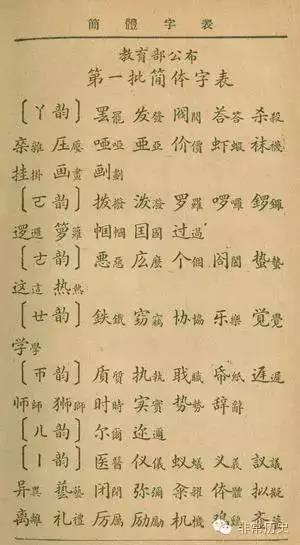 簡體字表
教育部公布
第一批简体字表
〔ㄚ韵〕罢罷 发發 阀閥 荅答 杀殺
杂雜 压壓 哑啞 亚亞 价價 虾蝦 袜襪
挂掛 画畫 划劃
〔ㄛ韵〕拨撥 泼潑 罗羅 啰囉 锣鑼
逻邏 箩籮 帼幗 国國 过過
〔ㄜ韵〕恶惡 庅麼 个個 阁閣 蛰蟄
这這 热熱
〔ㄝ韵〕鉄鐵 窃竊 协協 乐樂 觉覺
学學
〔ㄭ韵〕质質 执執 职職 帋紙 迟遲
师師 狮獅 时時 实實 势勢 辞辭
〔ㄦ韵〕尔爾 迩邇
〔ㄧ韵〕医醫 仪儀 蚁蟻 义義 议議
异異 艺藝 闭閉 弥彌 籴糴 体體 拟擬
离離 礼禮 厉厲 励勵 机機 鸡鷄 齐齊
非常历史